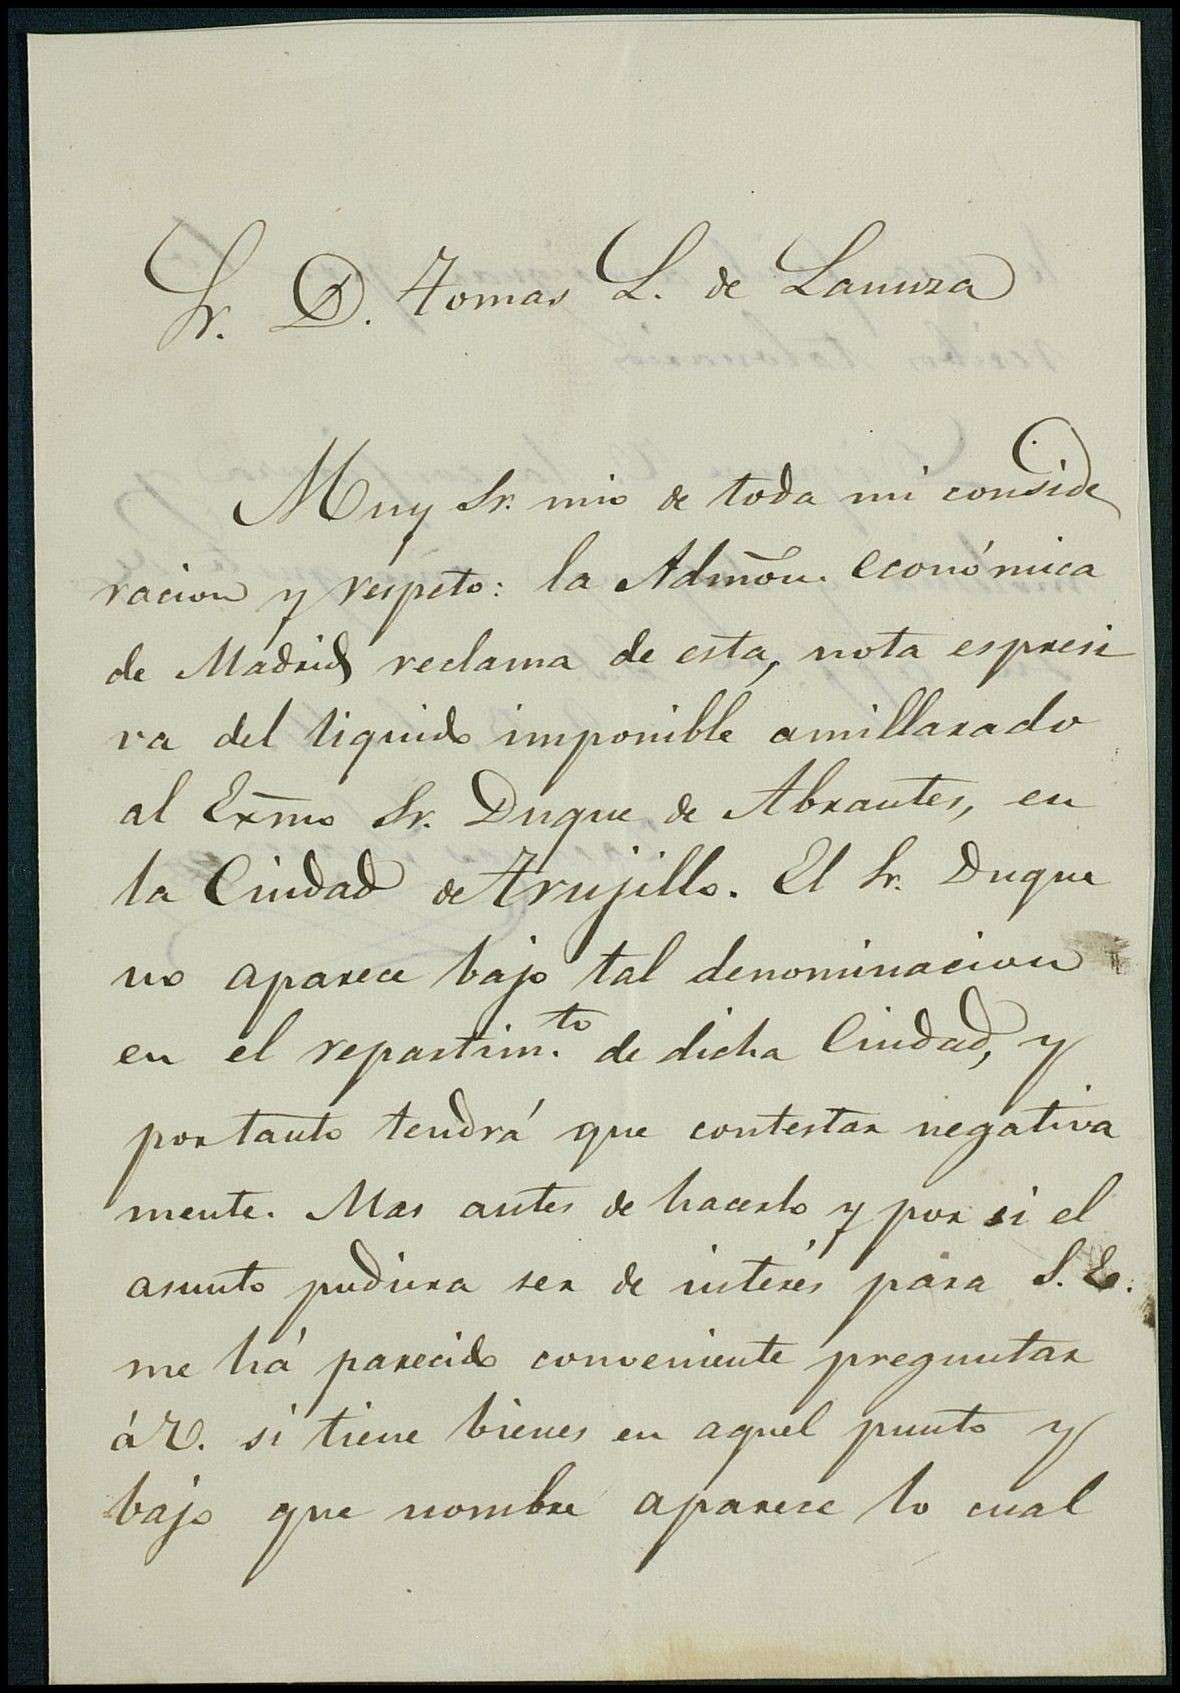 Sr. D. Tomas L. de Lanuza
Muy Sr. mio de toda mi conside
racion y respeto: la Admōn. económica
de Madrid reclama de esta, nota espresi
va del liquido imponible amillarado
al Exm̄o Sr. Duque de Abrantes, en
la Ciudad de Trujillo. El Sr. Duque
no aparece bajo tal denominacion
en el repartim.to de dicha Ciudad, y
por tanto tendrá que contestar negativa
mente. Mas antes de hacerlo y por si el
asunto pudiera ser de interés para S. E.
me há parecido conveniente preguntar
á V. si tiene bienes en aquel punto y
bajo que nombre aparece lo cual